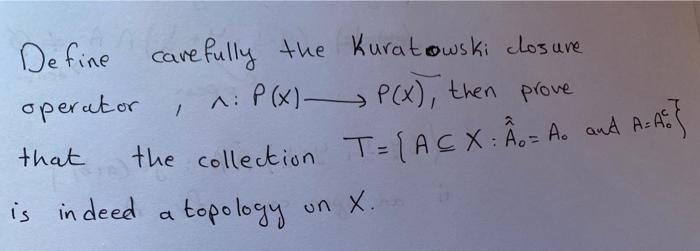 Define carefully the Kuratowski closure
operator , ^: P(X)⟶P(X), then prove
that the collection T={A⊆X: Â̂₀=A₀ and A=A₀ᶜ}
is indeed a topology on X.